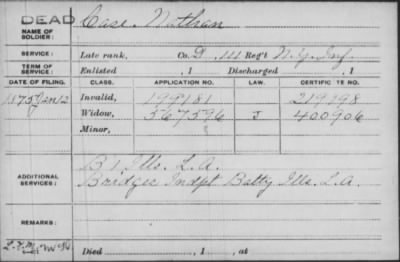 DEAD
NAME OF SOLDIER: Case, Nathan
SERVICE: Late rank, Co. D, 111 Reg't N.Y. Inf.
TERM OF SERVICE: Enlisted , 1 Discharged , 1
DATE OF FILING. CLASS. APPLICATION NO. LAW. CERTIFICATE NO.
1875 Jan 12 Invalid, 199181 219198
Widow, 567596 J 400906
Minor,
ADDITIONAL SERVICES: B 1, Ills. L.A.
Bridges Indpt Batty Ills. L.A.
REMARKS:
Died , 1 , at